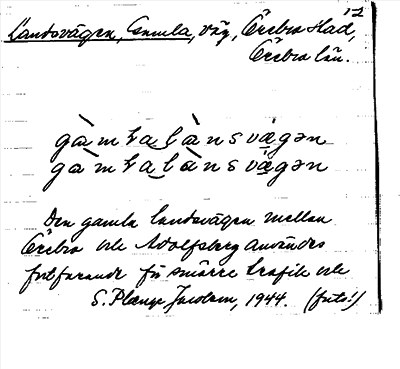 1-2
Landsvägen, Gamla, väg, Örebro stad,
Örebro län.
gàmhalànsvägən
gàmhalànsvägən
Den gamla landsvägen mellan
Örebro och Adolfsberg användes
fortfarande för smärre trafik och
S. Plænge Jacobson, 1944. (foto!)